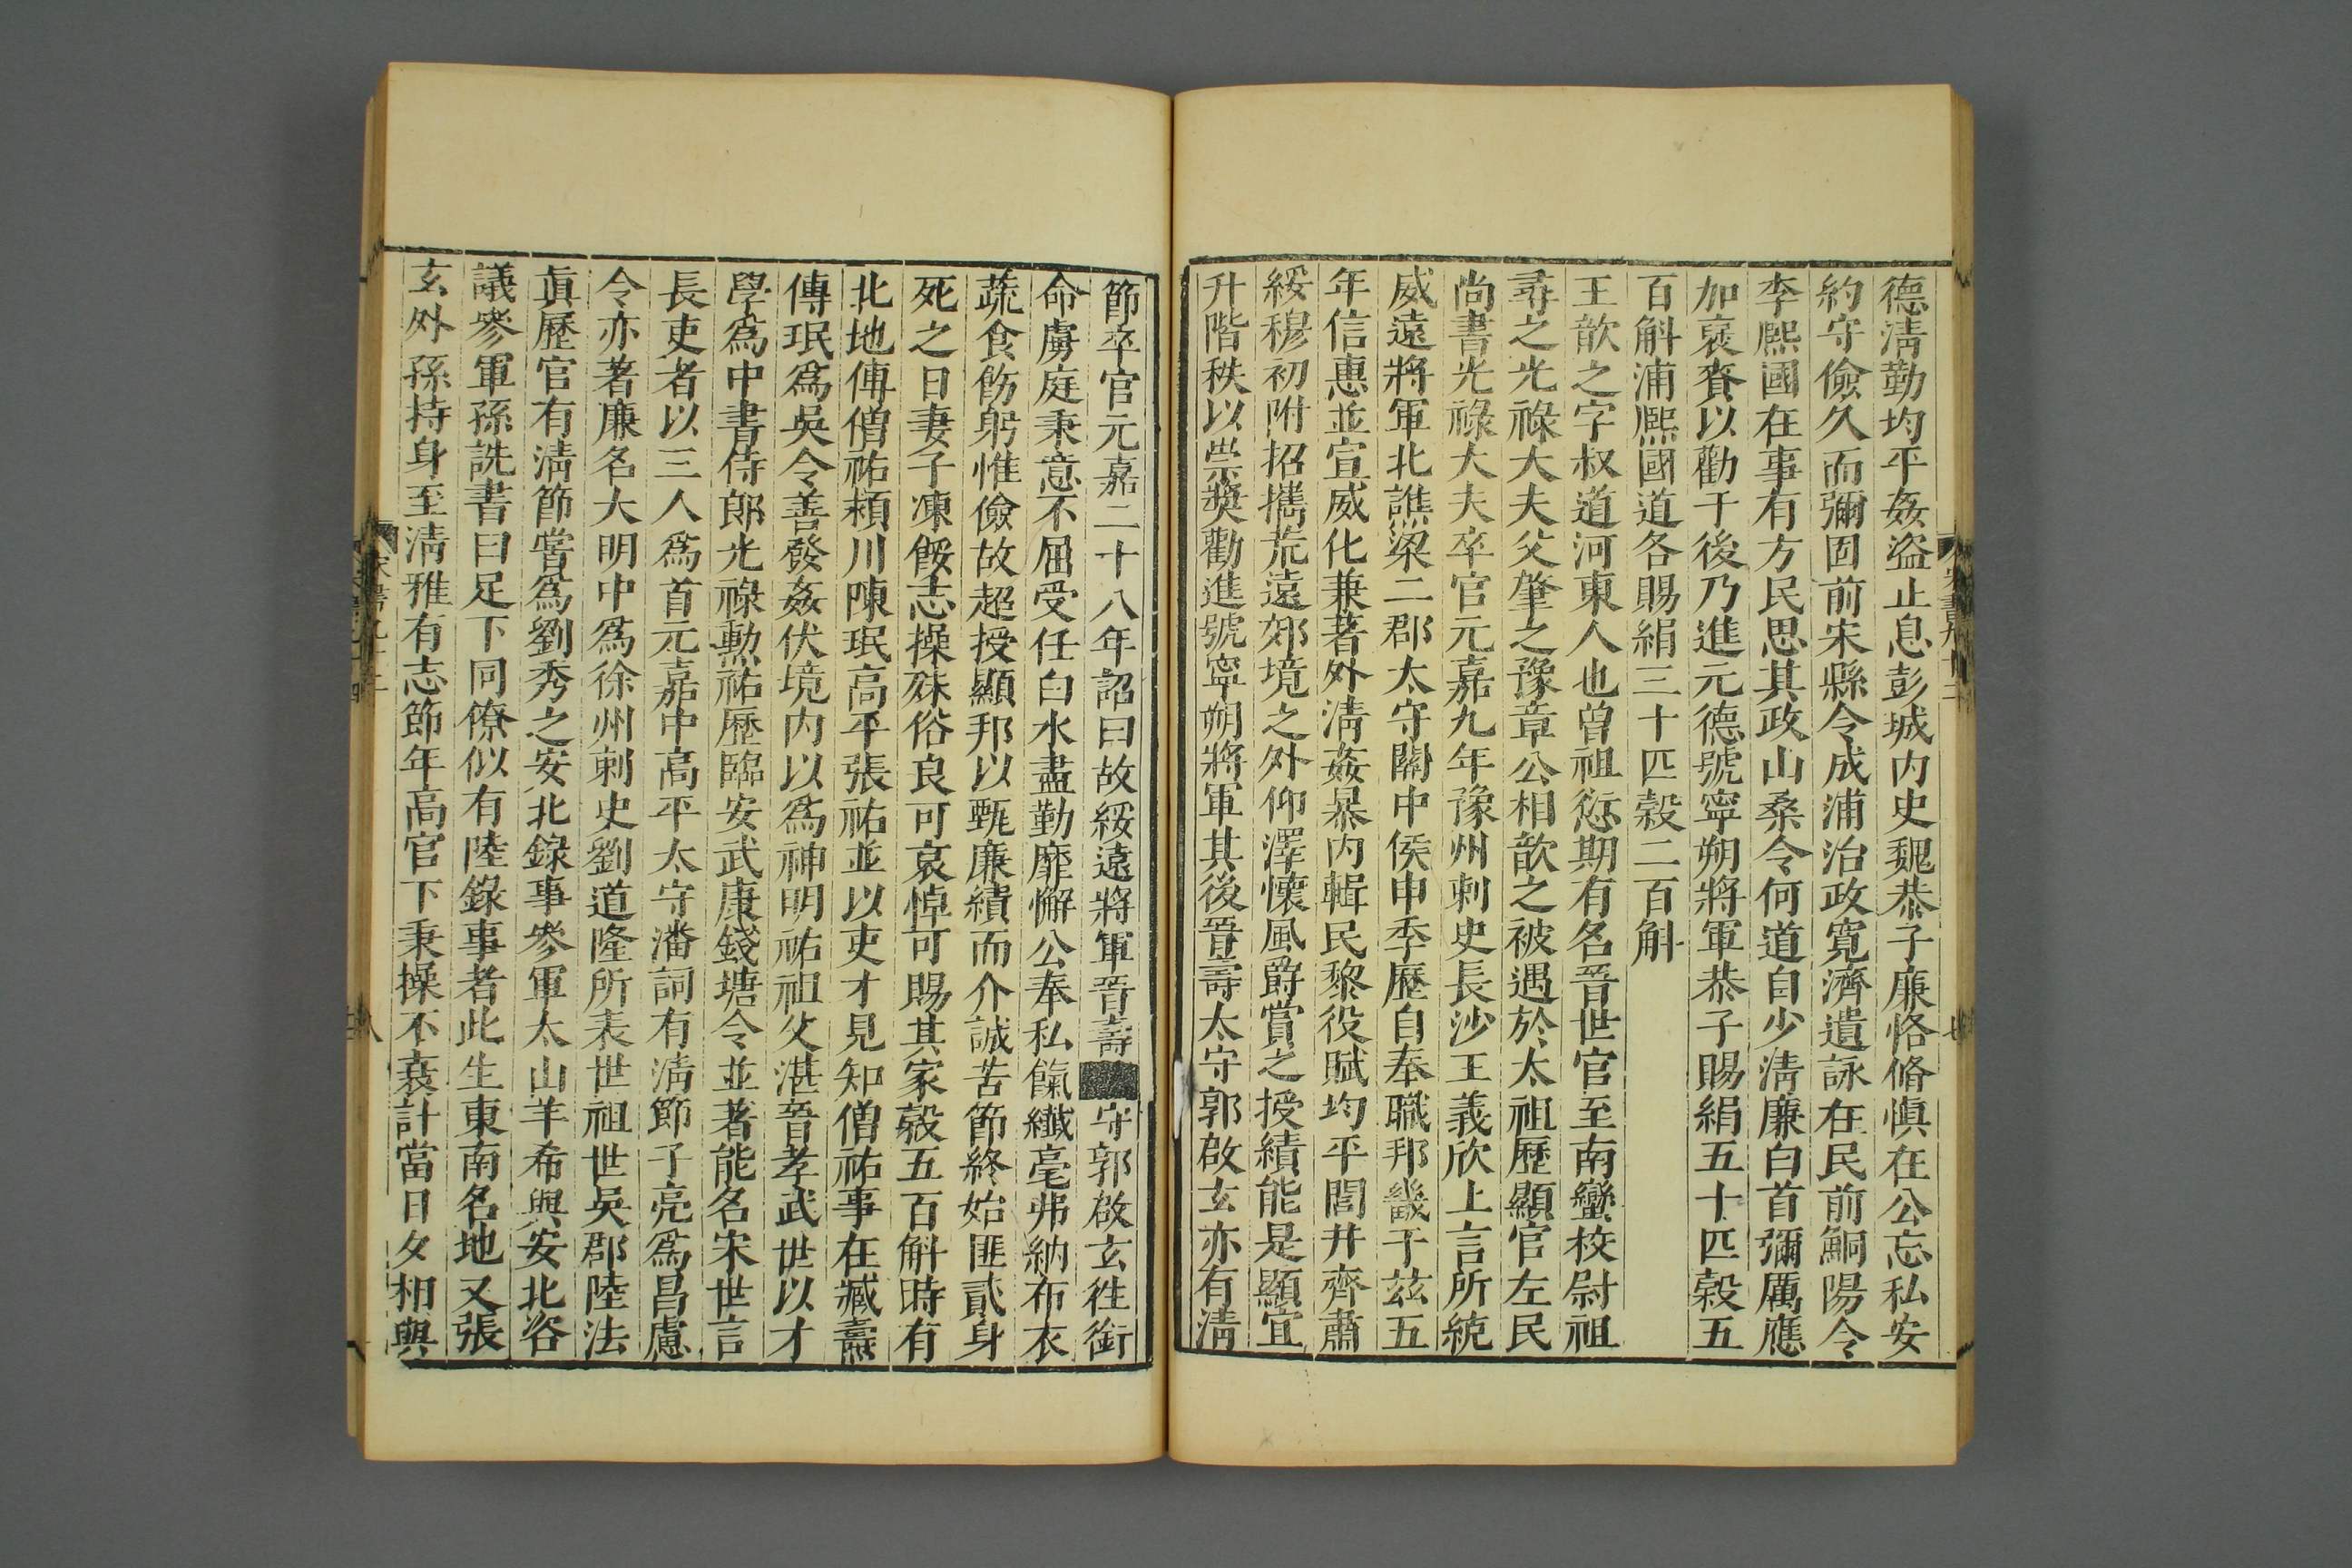 德淸勤均平姦盜止息彭城內史魏恭子廉恪脩愼在公忘私安
約守儉久而彌固前宋縣令成浦治政寬濟遺詠在民前鮦陽令
李熙國在事有方民思其政山桑令何道自少淸廉白首彌厲應
加褒賚以勸于後乃進元德號寧朔將軍恭子賜絹五十匹穀五
百斛浦熙國道各賜絹三十匹穀二百斛
王歆之字叔道河東人也曾祖愆期有名晉世官至南蠻校尉祖
尋之光祿大夫父肇之豫章公相歆之被遇於太祖歷顯官左民
尚書光祿大夫卒官元嘉九年豫州刺史長沙王義欣上言所統
威遠將軍北譙梁二郡太守關中侯申季歷自奉職邦畿于茲五
年信惠並宣威化兼著外淸姦暴內輯民黎役賦均平閭井齊肅
綏穆初附招攜荒遠郊境之外仰澤懷風爵賞之授績能是顯宜
升階秩以崇奬勸進號寧朔將軍其後晉壽太守郭啟玄亦有淸
節卒官元嘉二十八年詔曰故綏遠將軍晉壽守郭啟玄往銜
命虜庭秉意不屈受任白水盡勤靡懈公奉私餼纖毫弗納布衣
蔬食飭躬惟儉故超授顯邦以甄廉績而介誠苦節終始匪貳身
死之日妻子凍餒志操殊俗良可哀悼可賜其家穀五百斛時有
北地傅僧祐頴川陳珉高平張祐並以吏才見知僧祐事在臧燾
傳珉爲吳令善發姦伏境內以爲神明祐祖父湛晉孝武世以才
學爲中書侍郎光祿勳祐歷臨安武康錢塘令並著能名宋世言
長吏者以三人爲首元嘉中高平太守潘詞有淸節子亮爲昌慮
令亦著廉名大明中爲徐州刺史劉道隆所表世祖世吳郡陸法
眞歷官有淸節嘗爲劉秀之安北錄事參軍太山羊希與安北咨
議參軍孫詵書曰足下同僚似有陸錄事者此生東南名地又張
玄外孫持身至淸雅有志節年高官下秉操不衰計當日夕相與